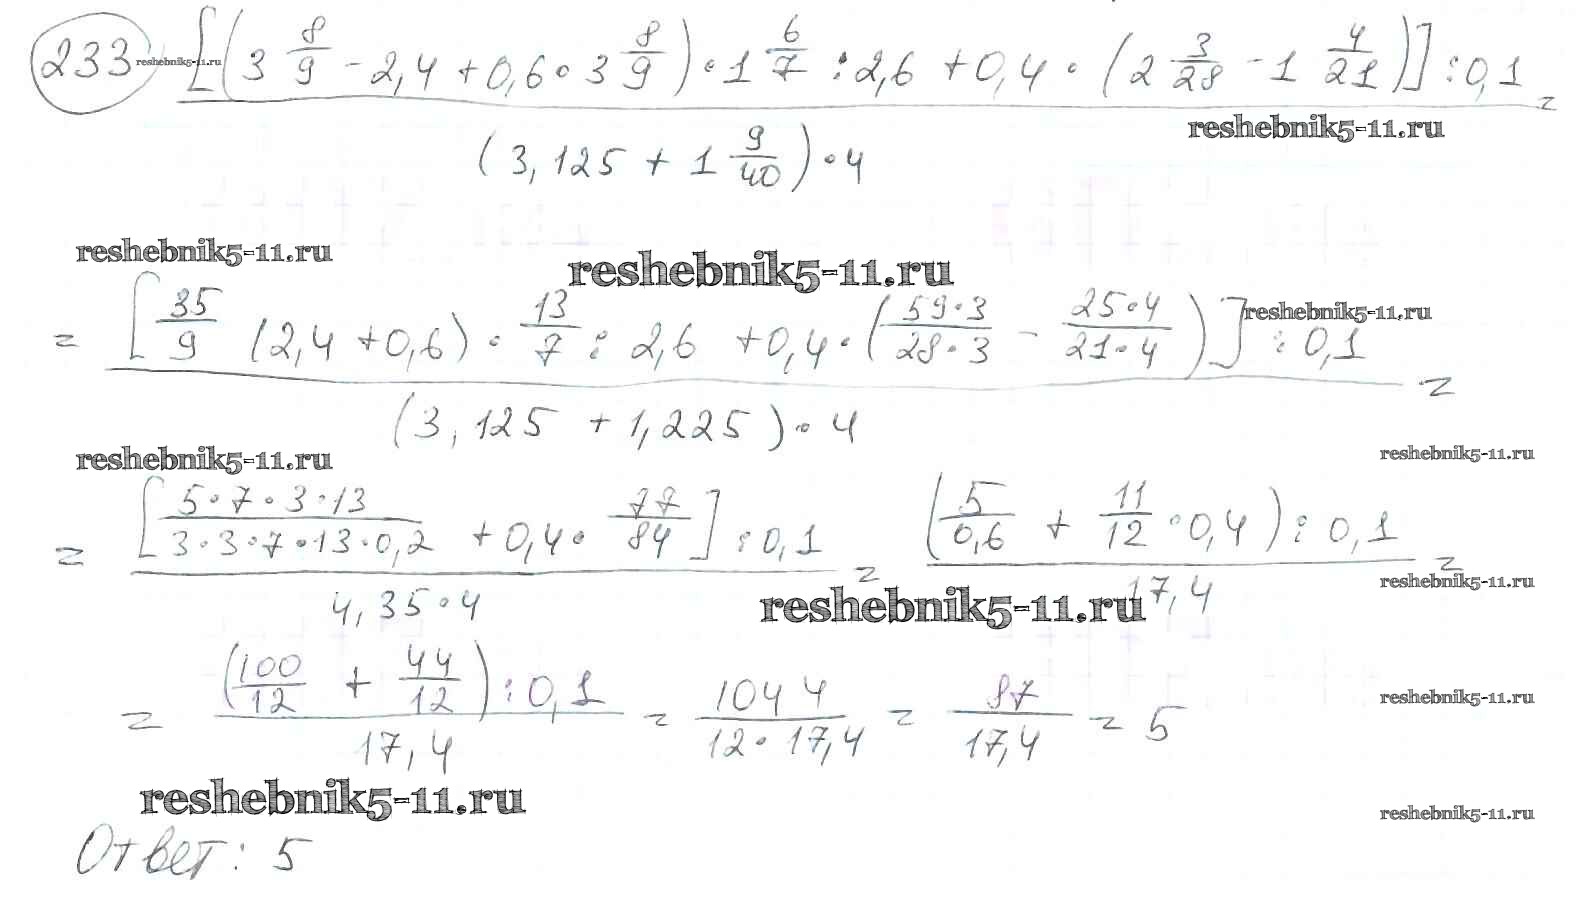 233 reshebnik5-11.ru [(3 8/9 - 2,4 + 0,6 • 3 8/9) • 1 6/7 : 2,6 + 0,4 • (2 3/28 - 1 4/21)] : 0,1 =
reshebnik5-11.ru
(3,125 + 1 9/40) • 4
reshebnik5-11.ru reshebnik5-11.ru
= [35/9 (2,4 + 0,6) • 13/7 : 2,6 + 0,4 • (59•3/28•3 - 25•4/21•4)] : 0,1 = reshebnik5-11.ru
(3,125 + 1,225) • 4
reshebnik5-11.ru reshebnik5-11.ru
= [5•7•3•13/3•3•7•13•0,2 + 0,4 • 77/84] : 0,1 = (5/0,6 + 11/12 • 0,4) : 0,1 =
4,35•4 17,4
reshebnik5-11.ru reshebnik5-11.ru
= (100/12 + 44/12) : 0,1 / 17,4 = 1044/12•17,4 = 87/17,4 = 5
reshebnik5-11.ru
reshebnik5-11.ru reshebnik5-11.ru
Ответ: 5